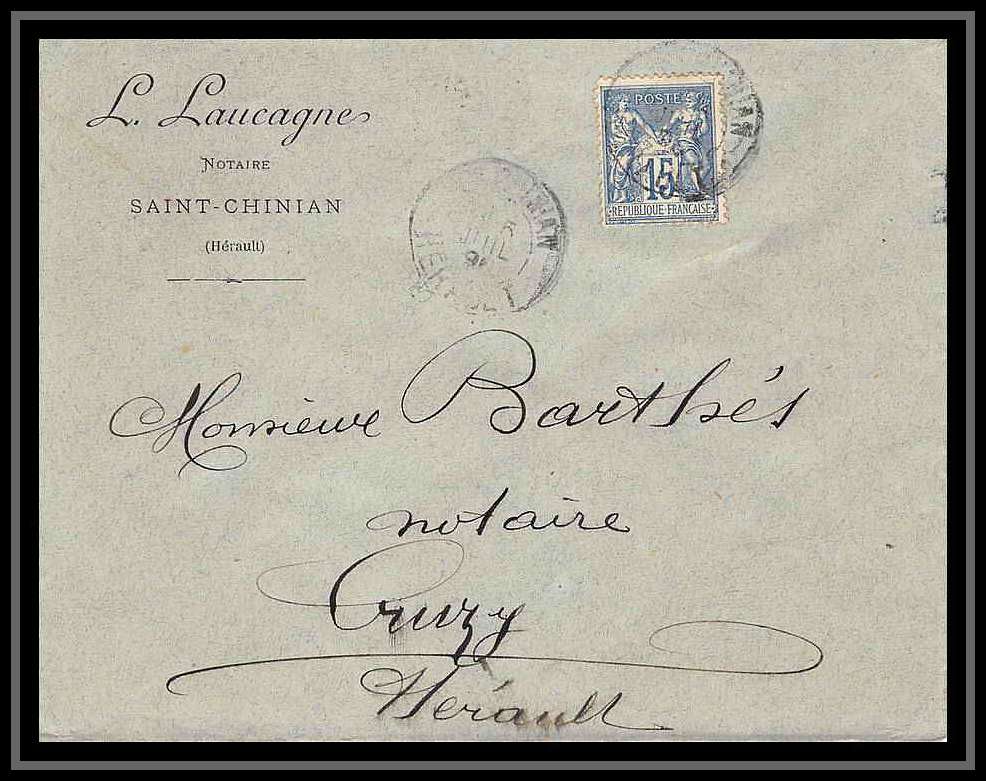 L. Laucagne
NOTAIRE
SAINT-CHINIAN
(Hérault)
POSTE
15
REPUBLIQUE FRANÇAISE
NIAN
NIAN
JUIL
HERAULT
Monsieur Barthés
notaire
Cruzy
Hérault